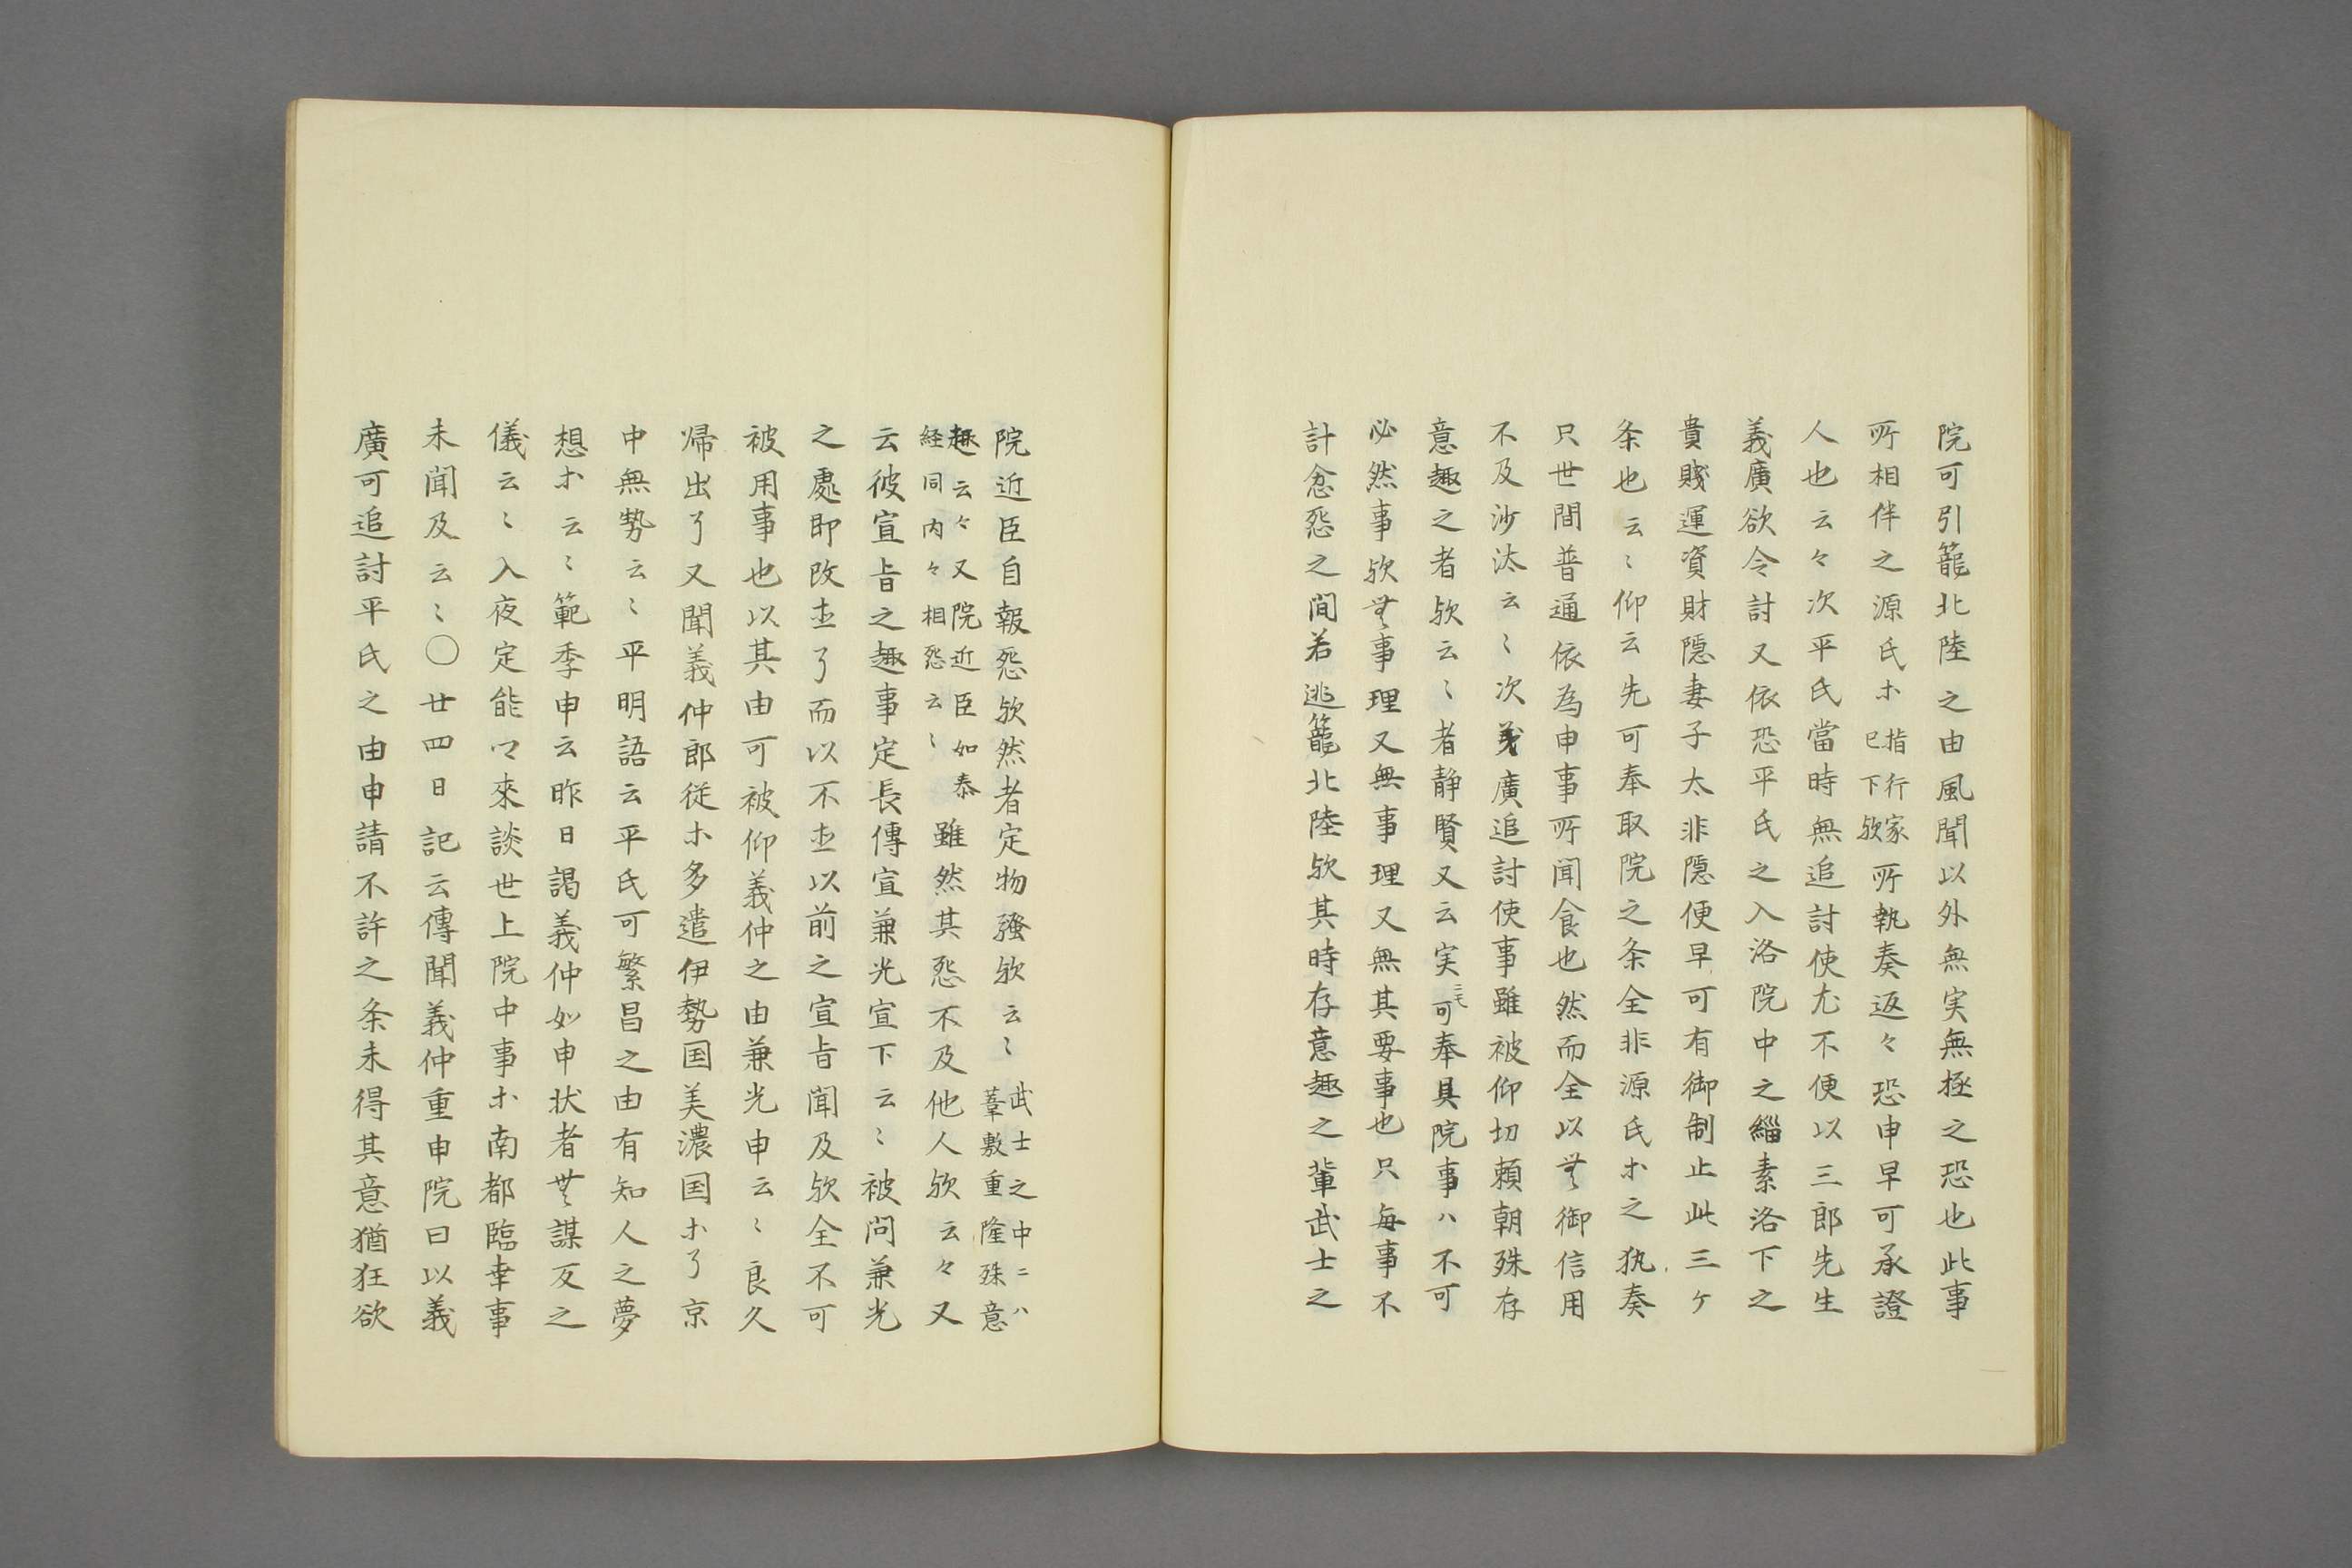 院可引籠北陸之由風聞以外無実無極之恐也此事
所相伴之源氏ホ指行家巳下欤所執奏返々恐申早可承證
人也云々次平氏當時無追討使尤不便以三郎先生
義廣欲令討又依恐平氏之入洛院中之緇素洛下之
貴賤運資財隠妻子太非隠便早可有御制止此三ケ
条也云〻仰云先可奉取院之条全非源氏ホ之执奏
只世間普通依為申事所聞食也然而全以無御信用
不及沙汰云〻次義廣追討使事雖被仰切頼朝殊存
意趣之者欤云〻者静賢又云実ニモ可奉具院事ハ不可
必然事欤無事理又無事理又無其要事也只毎事不
計忿怨之間若逃籠北陸欤其時存意趣之輩武士之
院近臣自報怨欤然者定物騒欤云〻武士之中ニハ葦敷重隆殊意
趣云々又院近臣如泰経同内々相怨云〻雖然其怨不及他人欤云々又
云彼宣旨之趣事定長傳宣兼光宣下云〻被問兼光
之處即改直了而以不直以前之宣旨聞及欤全不可
被用事也以其由可被仰義仲之由兼光申云〻良久
帰出了又聞義仲郎従ホ多遣伊勢国美濃国ホ了京
中無勢云〻平明語云平氏可繁昌之由有知人之夢
想ホ云〻範季申云昨日謁義仲如申状者無謀反之
儀云〻入夜定能卿來談世上院中事ホ南都臨幸事
未聞及云〻○廿四日記云傳聞義仲重申院曰以義
廣可追討平氏之由申請不許之条未得其意猶狂欲